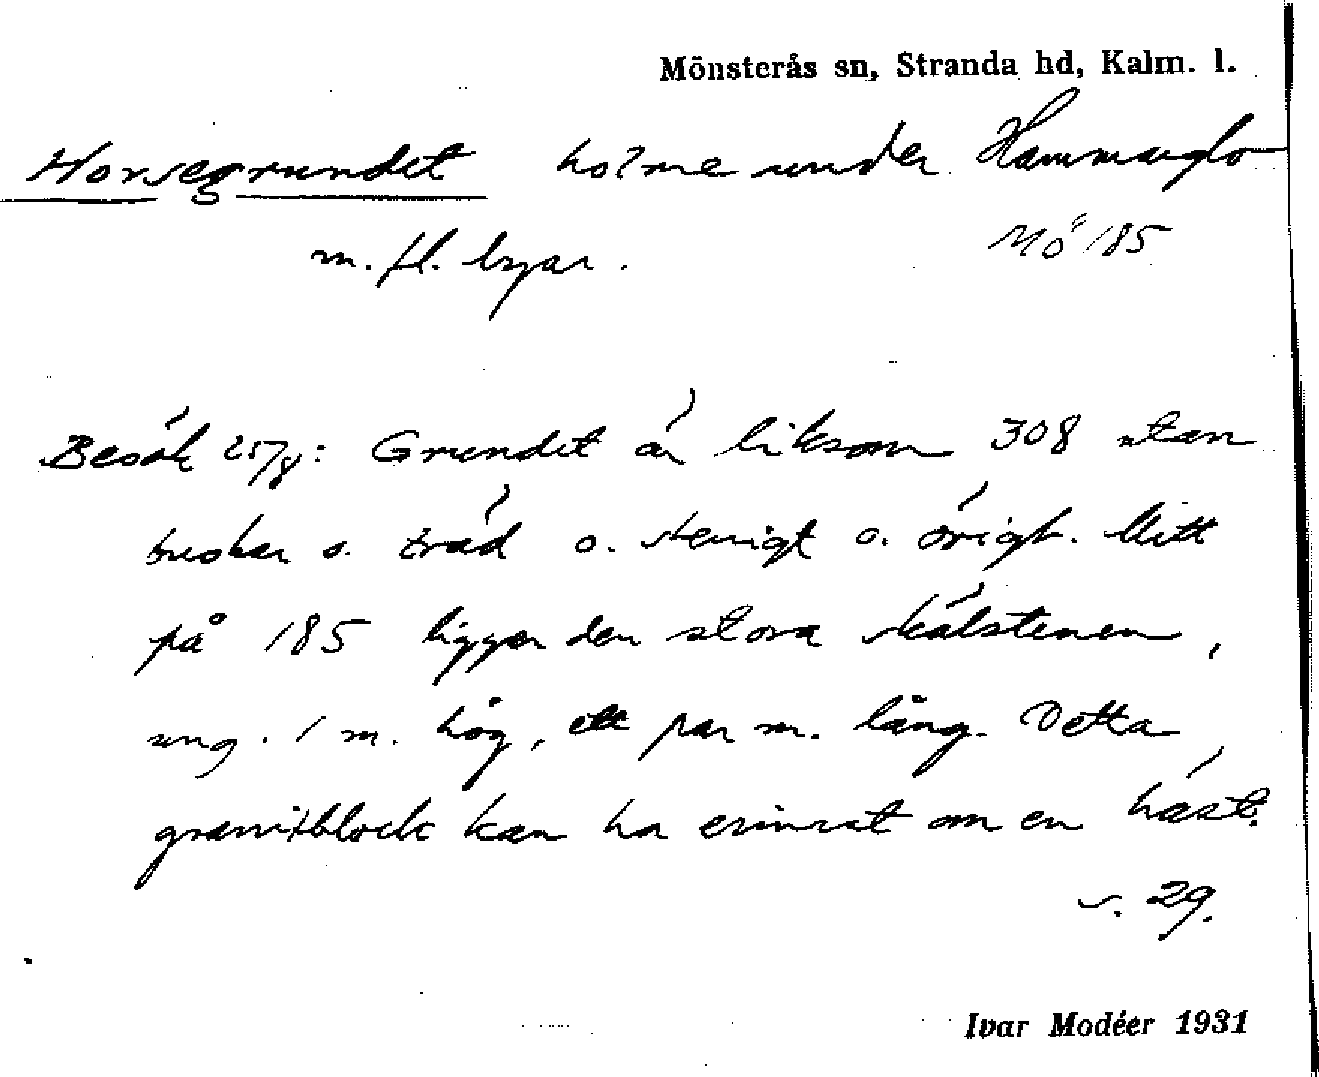 Mönsterås sn, Stranda hd, Kalm. l.
Horsegrundet holme under Hammarglo
m. fl. byar.
Mö 185
Besök 25/8: Grundet är liksom 308 utan
buskar o. träd o. stenigt o. örigt. Mitt
på 185 ligger den stora skålstenen,
ung. 1 m. hög, ett par m. lång. Detta
granitblock kan ha erinrat om en häst.
s. 29.
Ivar Modéer 1931